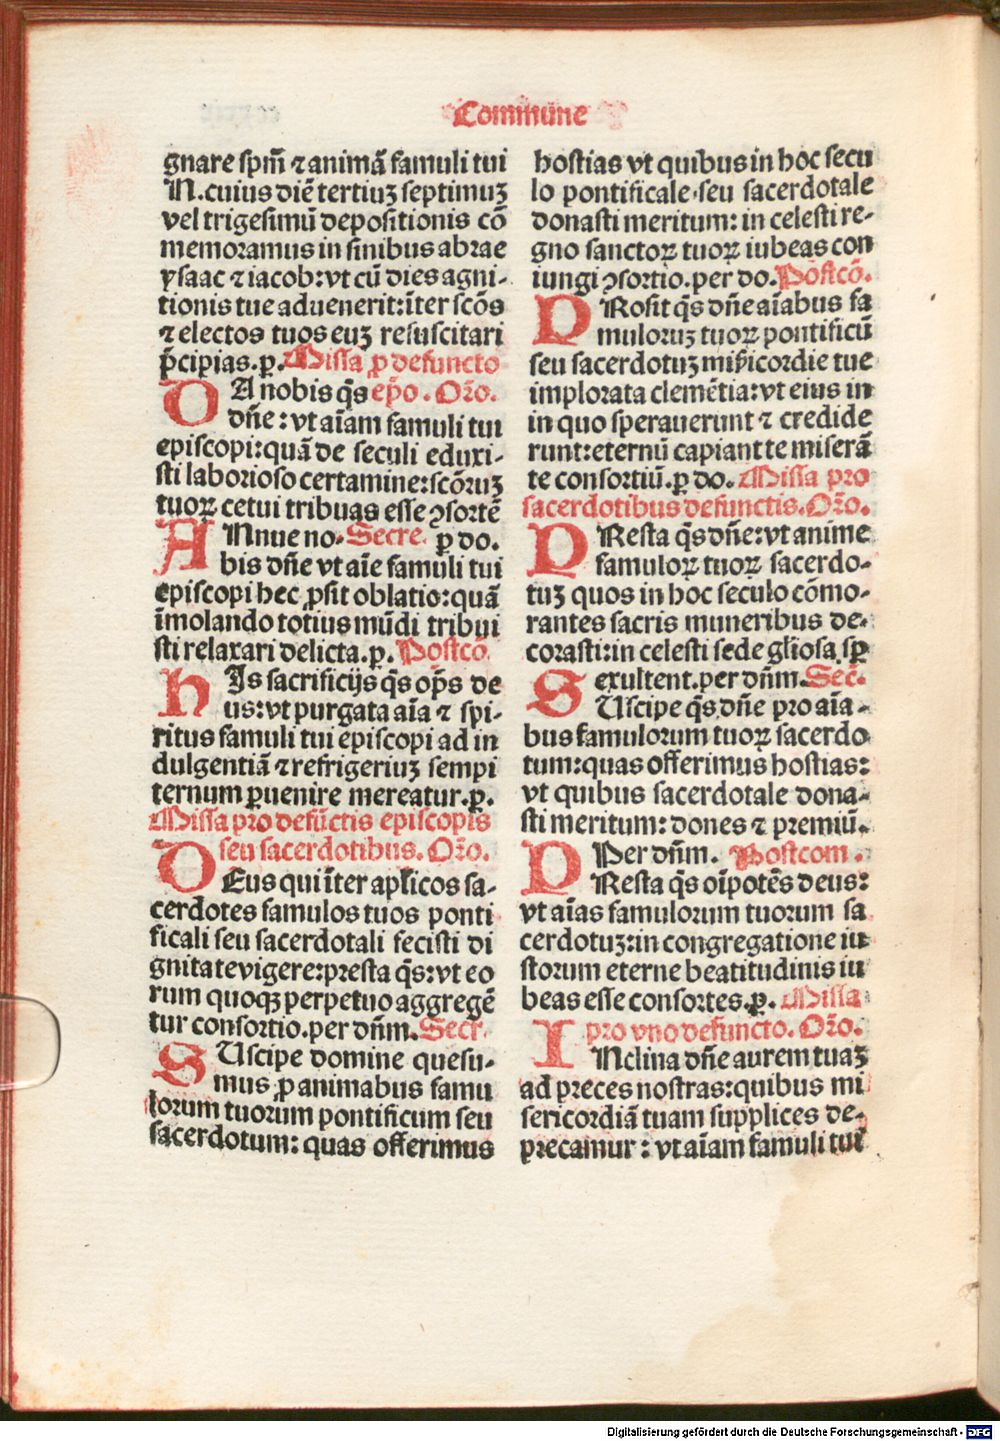 Commune
gnare spm̄ ⁊ animā famuli tui
N. cuius diē tertiuꝫ septimuꝫ
vel trigesimū depositionis cō
memoramus in sinibus abrae
ysaac ⁊ iacob: vt cū dies agni-
tionis tue aduenerit: īter scōs
⁊ electos tuos euꝫ resuscitari
p̄cipias. ꝑ. Missa ꝓ defuncto
DA nobis q̄s ep̄o. Or̄o.
dn̄e: vt aīam famuli tui
episcopi: quā de seculi eduxi-
sti laborioso certamine: scōruꝫ
tuoꝝ cetui tribuas esse ꝯsortē
ANnue no- Secre. ꝑ do.
bis dn̄e vt aīe famuli tui
episcopi hec ꝓsit oblatio: quā
īmolando totius mūdi tribui
sti relaxari delicta. ꝑ. Postcō.
HIs sacrificijs q̄s op̄s de
us: vt purgata aīa ⁊ spi-
ritus famuli tui episcopi ad in
dulgentiā ⁊ refrigeriuꝫ sempi
ternum ꝑuenire mereatur. ꝑ.
Missa pro defūctis episcopis
seu sacerdotibus. Or̄o.
DEus qui īter apl̄icos sa-
cerdotes famulos tuos ponti
ficali seu sacerdotali fecisti di
gnitate vigere: presta q̄s: vt eo
rum quoqꝫ perpetuo aggregē
tur consortio. per dn̄m. Secr.
SUscipe domine quesu-
mus ꝓ animabus famu
lorum tuorum pontificum seu
sacerdotum: quas offerimus
hostias vt quibus in hoc secu
lo pontificale seu sacerdotale
donasti meritum: in celesti re-
gno sanctoꝝ tuoꝝ iubeas con
iungi ꝯsortio. per do. Postcō.
PRosit q̄s dn̄e aīabus fa
muloruꝫ tuoꝝ pontificū
seu sacerdotuꝫ mīs̄icordie tue
implorata clemētia: vt eius in
in quo sperauerunt ⁊ credide
runt: eternū capiant te miserā
te consortiū. ꝑ do. Missa pro
sacerdotibus defunctis. Or̄o.
PResta q̄s dn̄e: vt anime
famuloꝝ tuoꝝ sacerdo-
tuꝫ quos in hoc seculo cōmo-
rantes sacris muneribus de-
corasti: in celesti sede gl̄iosa sꝑ
exultent. per dn̄m. Sec̄.
SUscipe q̄s dn̄e pro aīa-
bus famulorum tuoꝝ sacerdo
tum: quas offerimus hostias:
vt quibus sacerdotale dona-
sti meritum: dones ⁊ premiū.
Per dn̄m. Postcom.
PResta q̄s oīpotēs deus:
vt aīas famulorum tuorum sa
cerdotuꝫ: in congregatione iu
storum eterne beatitudinis iu
beas esse consortes. ꝑ. Missa
pro vno defuncto. Or̄o.
INclina dn̄e aurem tuaꝫ
ad preces nostras: quibus mi
sericordiā tuam supplices de-
precamur: vt aīam famuli tui
Digitalisierung gefördert durch die Deutsche Forschungsgemeinschaft - DFG